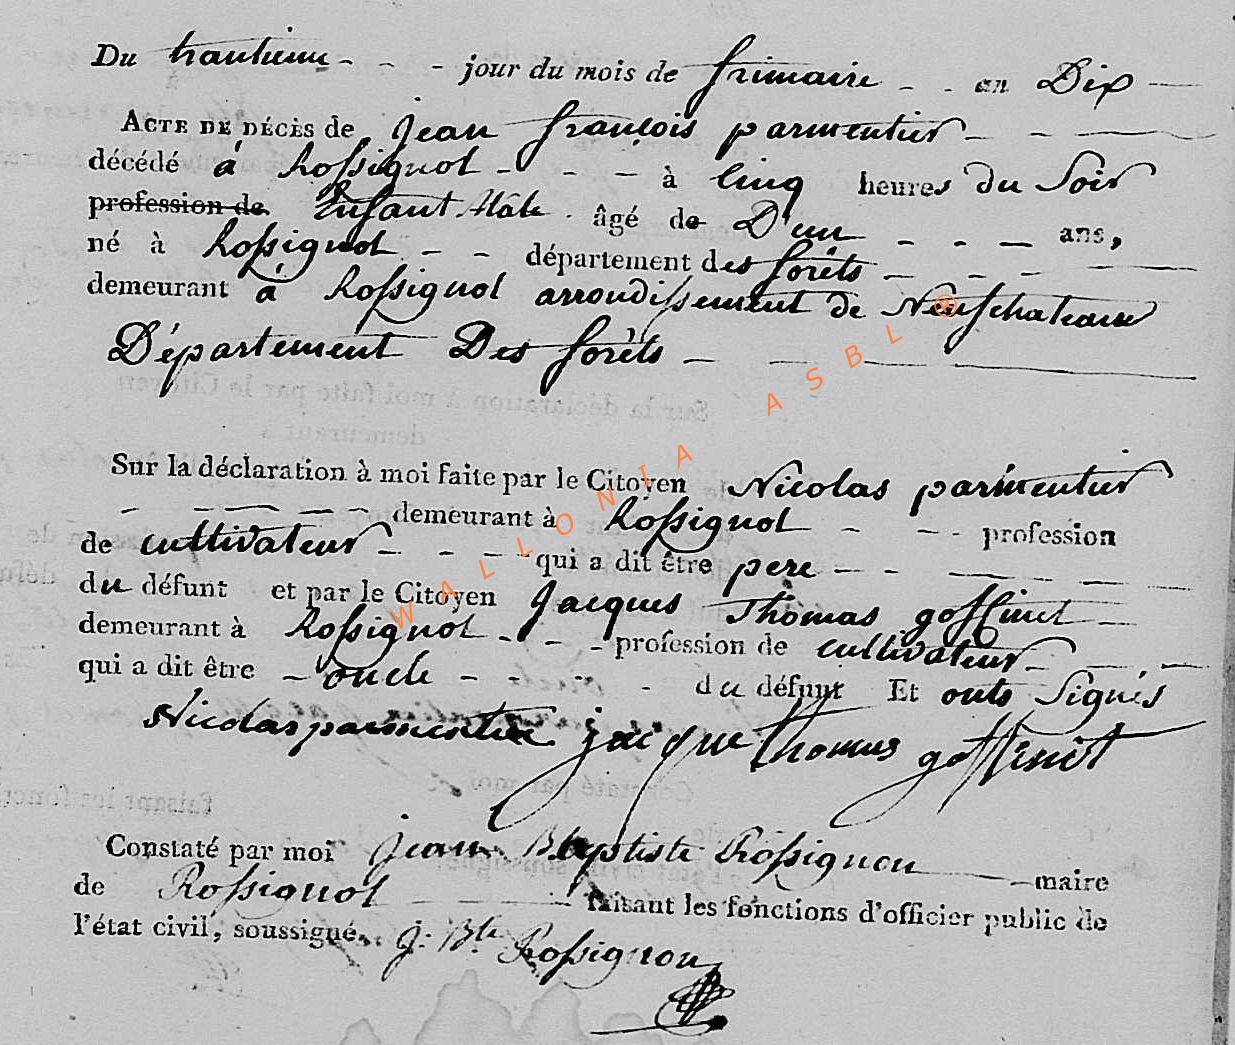 Du trantieme - - - jour du mois de frimaire - - an Dix
ACTE DE DÉCÈS de Jean françois parmentier
décédé à Rossignol - - - à Cinq heures du Soir
profession de Enfant Mâle âgé de D'un - - - ans,
né à Rossignol - - département des forêts - - -
demeurant à Rossignol arrondissement de Neufchateau
Département Des forêts -
Sur la déclaration à moi faite par le Citoyen Nicolas parmentier
- - - - demeurant à Rossignol - - - profession
de cultivateur - - - - qui a dit être pere - - -
du défunt et par le Citoyen Jacques Thomas goffinet -
demeurant à Rossignol - - - profession de cultivateur - - - -
qui a dit être - oncle - - - - du défunt Et onts Signés
Nicolas parmentier jacque thomas goffinet
Constaté par moi Jean Baptiste Rossignon maire
de Rossignol - - - faisant les fonctions d'officier public de
l'état civil, soussigné. J. Bte Rossignon
WALLONIA ASBL ®